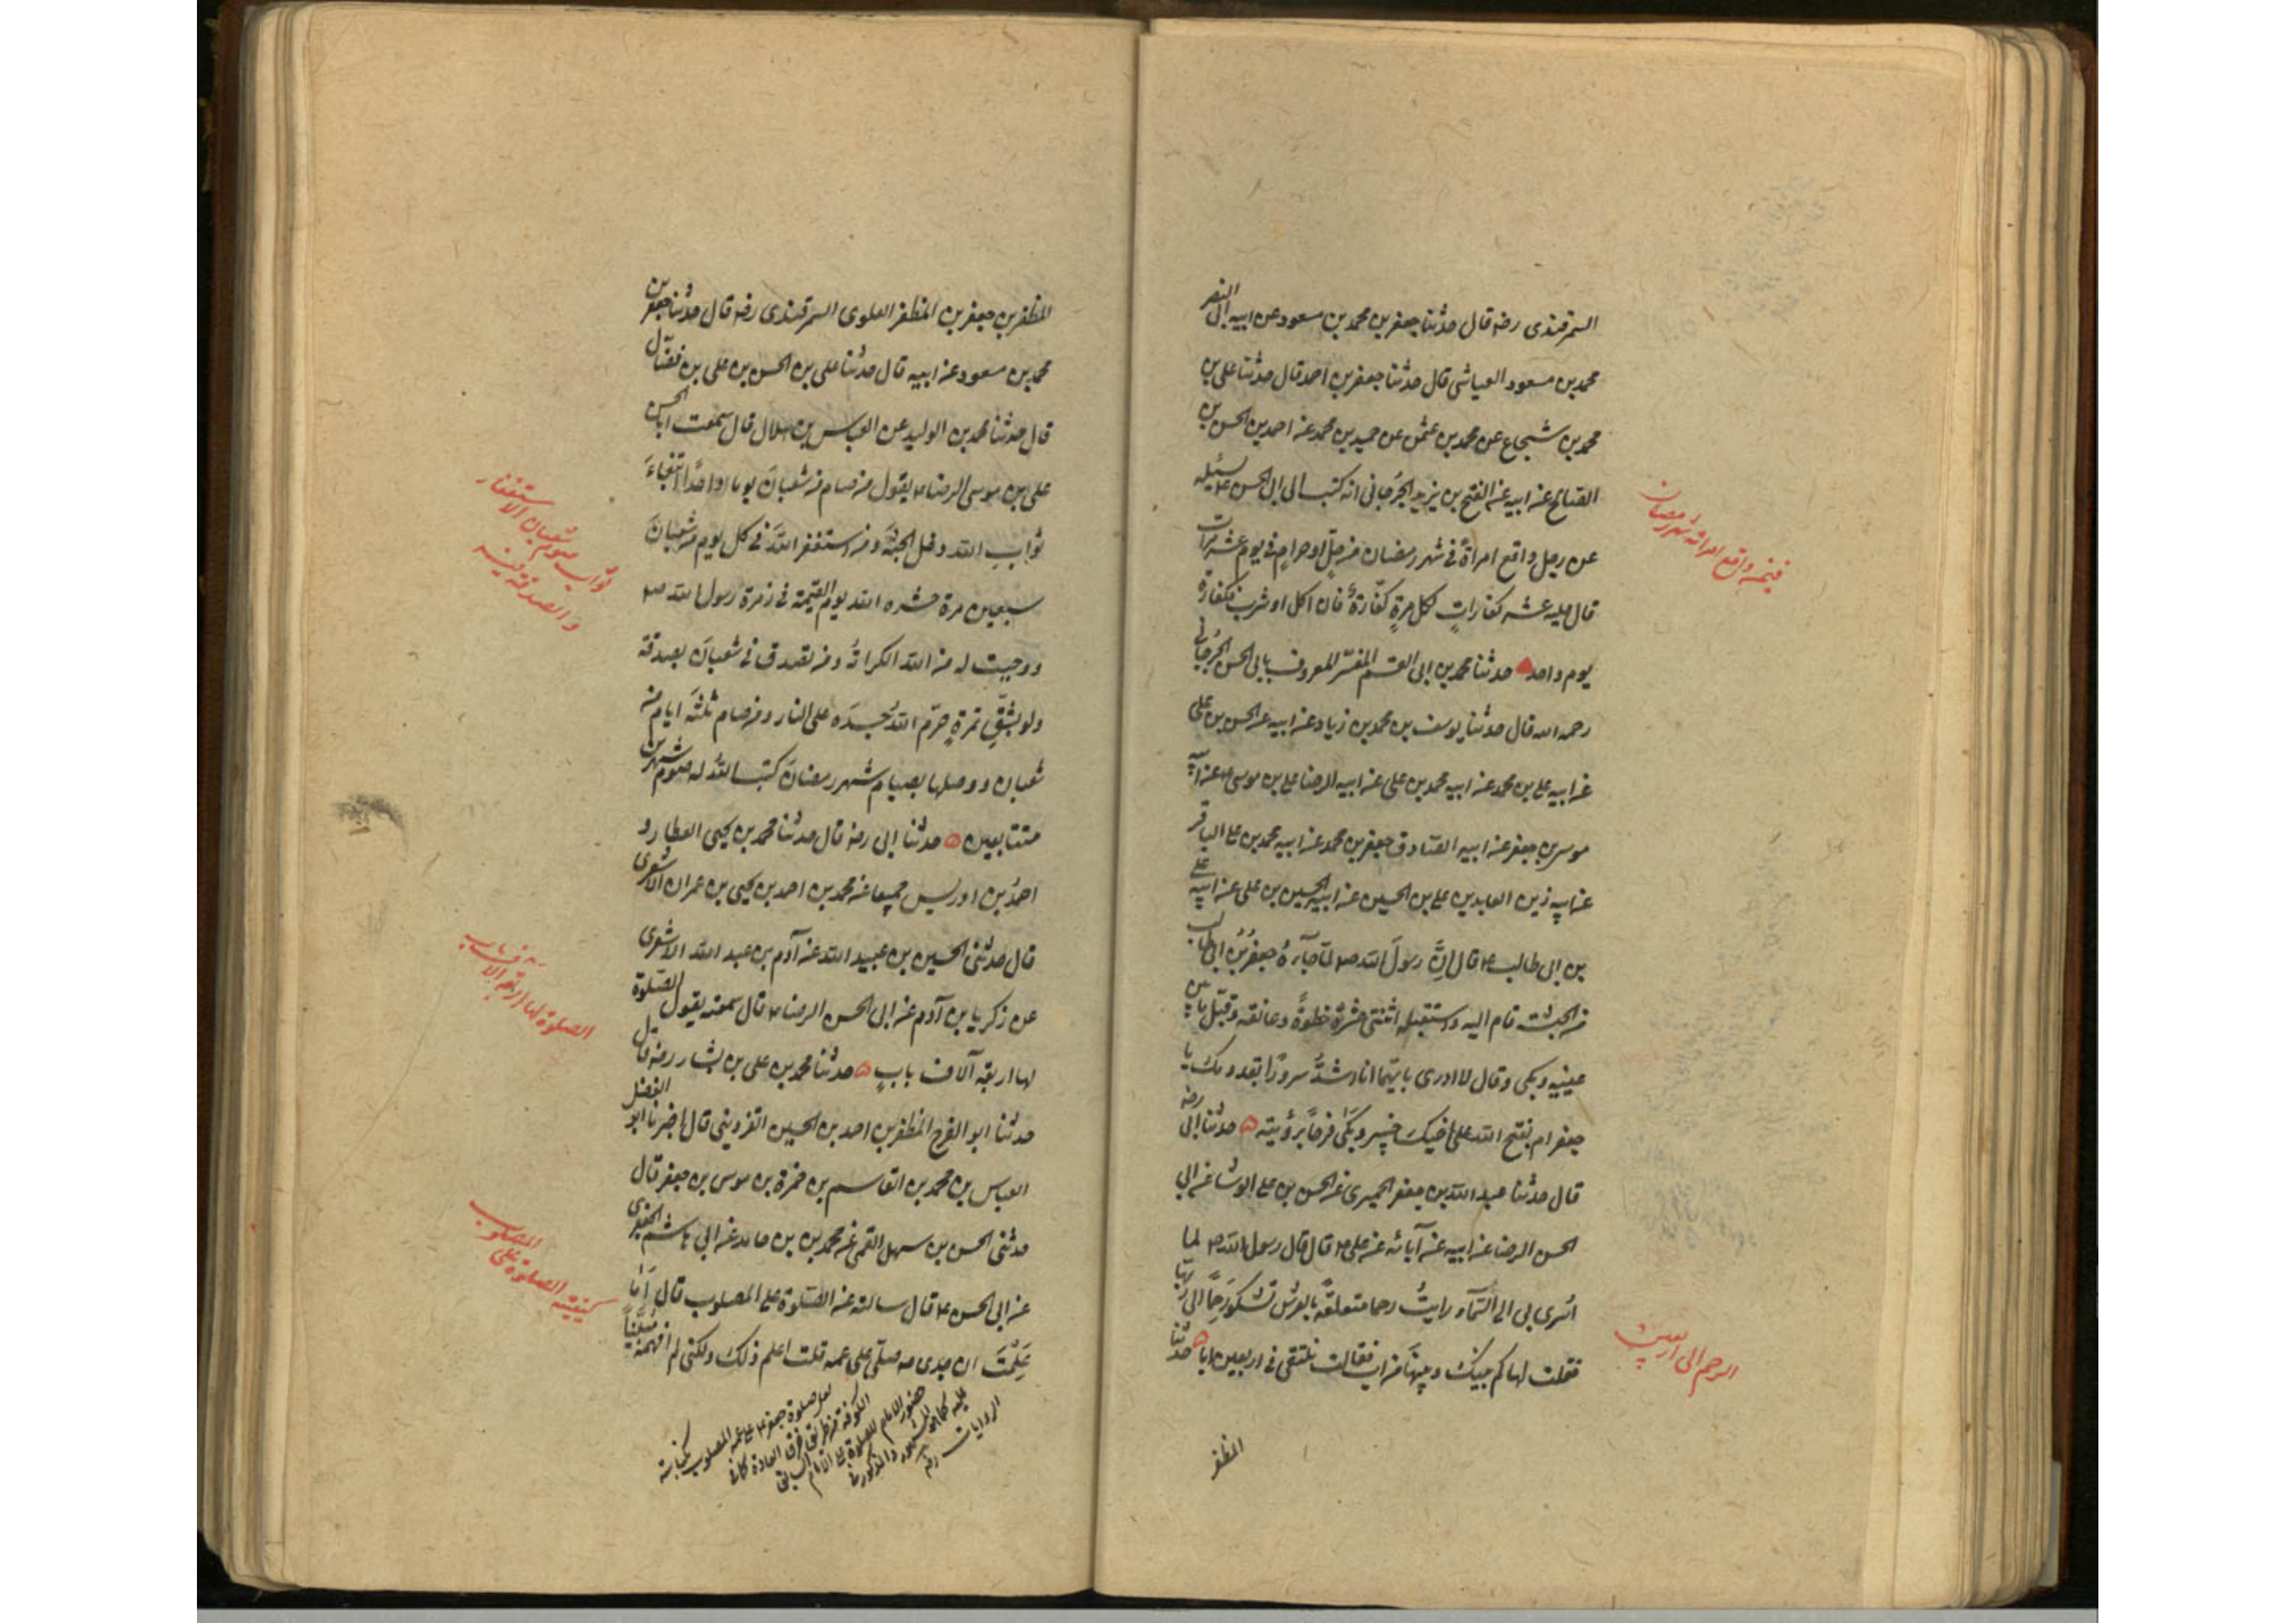 السمرقندی رضه قال حدثنا جعفر بن محمد بن مسعود عن ابیه ابی النضر
محمد بن مسعود العیاشی قال حدثنا جعفر بن احمد قال حدثنا علی بن
محمد بن شجاع عن محمد بن عثمن عن حمید بن محمد عن احمد بن الحسن بن
الصالح عن ابیه عن الفتح بن یزید الجرجانی انه کتب الی ابی الحسن ع یسئله
عن رجل واقع امراة فی شهر رمضان من حل او حرام فی یوم عشر مرات
قال علیه عشر کفارات لکل مرة کفارة فان اکل او شرب فکفارة
یوم واحد حدثنا محمد بن ابی القسم المفسر المعروف بابی الحسن الجرجانی
رحمه الله قال حدثنا یوسف بن محمد بن زیاد عن ابیه عن الحسن بن علی
عن ابیه علی بن محمد عن ابیه محمد بن علی عن ابیه الرضا علی بن موسی ع عن ابیه
موسی بن جعفر عن ابیه الصادق جعفر بن محمد عن ابیه محمد بن علی الباقر
عن ابیه زین العابدین علی بن الحسین عن ابیه الحسین بن علی عن ابیه علی
بن ابی طالب ع قال ان رسول الله ص لما جاءه جعفر بن ابی طالب
من الحبشة قام الیه واستقبله اثنتی عشرة خطوة وعانقه وقبل ما بین
عینیه وبکی وقال لا ادری بایهما انا اشد سرورا بقدومک یا
جعفر ام بفتح الله علی اخیک خیبر وبکی فرحا برؤیته حدثنا ابی رضه
قال حدثنا عبد الله بن جعفر الحمیری عن الحسن بن علی الوشا عن ابی
الحسن الرضا عن ابیه عن آبائه عن علی ع قال قال رسول الله ص لما
اسری بی الی السماء رایت رحما متعلقة بالعرش تشکو رحما الی ربها
فقلت لها کم بینک وبینها من اب فقالت نلتقی فی اربعین ابا حدثنا
المظفر
فیمن واقع امراته شهر رمضان
الرحم الی اربعین
المظفر بن جعفر بن المظفر العلوی السمرقندی رضه قال حدثنا جعفر بن
محمد بن مسعود عن ابیه قال حدثنا علی بن الحسن بن علی بن فضال
قال حدثنا محمد بن الولید عن العباس بن هلال قال سمعت ابا الحسن
علی بن موسی الرضا ع یقول من صام من شعبان یوما واحدا ابتغاء
ثواب الله دخل الجنة ومن استغفر الله فی کل یوم من شعبان
سبعین مرة حشره الله یوم القیمة فی زمرة رسول الله ص
ووجبت له من الله الکرامة ومن تصدق فی شعبان بصدقة
ولو بشق تمرة حرم الله جسده علی النار ومن صام ثلثة ایام من
شعبان ووصلها بصیام شهر رمضان کتب الله له صوم شهرین
متتابعین حدثنا ابی رضه قال حدثنا محمد بن یحیی العطار و
احمد بن ادریس جمیعا عن محمد بن احمد بن یحیی بن عمران الاشعری
قال حدثنی الحسین بن عبید الله عن آدم بن عبد الله الاشعری
عن زکریا بن آدم عن ابی الحسن الرضا ع قال سمعته یقول الصلوة
لها اربعة آلاف باب حدثنا محمد بن علی بن بشار رضه قال
حدثنا ابو الفرج المظفر بن احمد بن الحسین القزوینی قال اخبرنا ابو الفضل
العباس بن محمد بن القاسم بن حمزة بن موسی بن جعفر قال
حدثنی الحسن بن سهل القمی عن محمد بن بن حامد عن ابی هاشم الجعفری
عن ابی الحسن ع قال سالته عن الصلوة علی المصلوب قال اما
علمت ان جدی ص صلی علی عمه قلت اعلم ذلک ولکنی لم افهمه مبینا
ثواب صوم شعبان والاستغفار
والصدقة فیه
الصلوة لها اربعة الاف باب
کیفیة الصلوة علی المصلوب
لعل صلوة جعفر ع علی عمه المصلوب بکناسة
الکوفة من طریق خرق العادة کما فی
حضور الامام للصلوة علی الامام السابق
علیه کما هو المشهور والمذکور فی
الروایات